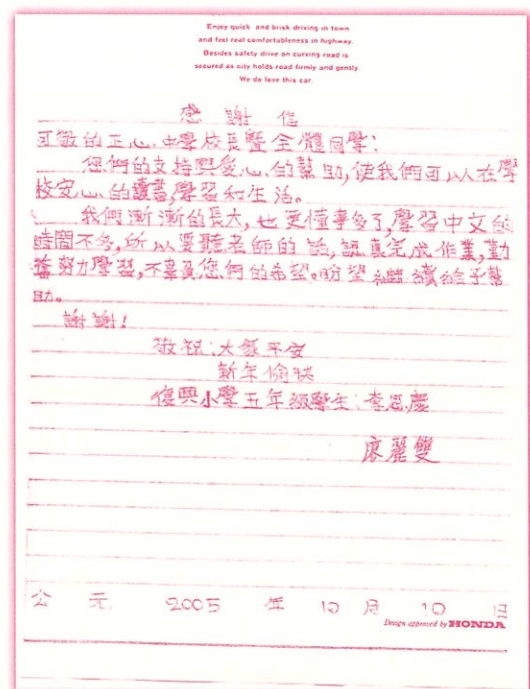 Enjoy quick and brisk driving in town
and feel real comfortableness in highway.
Besides safety drive on curving road is
secured as city holds road firmly and gently.
We do love this car.
感謝信
可敬的正心中學校長暨全體同學：
您們的支持與愛心的幫助,使我們可以在學
校安心的讀書,學習和生活。
我們漸漸的長大,也更懂事多了,學習中文的
時間不多,所以要聽老師的話,認真完成作業,勤
奮努力學習,不辜負您們的希望。盼望繼續給予幫
助。
謝謝!
敬祝:大家平安
新年愉快
復興小學五年級學生:李恩慶
廖麗雙
公元 2005 年 10 月 10 日
Design approved by HONDA